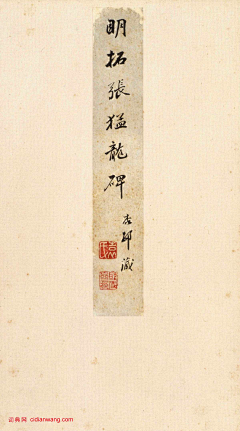 明拓張猛龍碑
藏
词典网 cidianwang.com